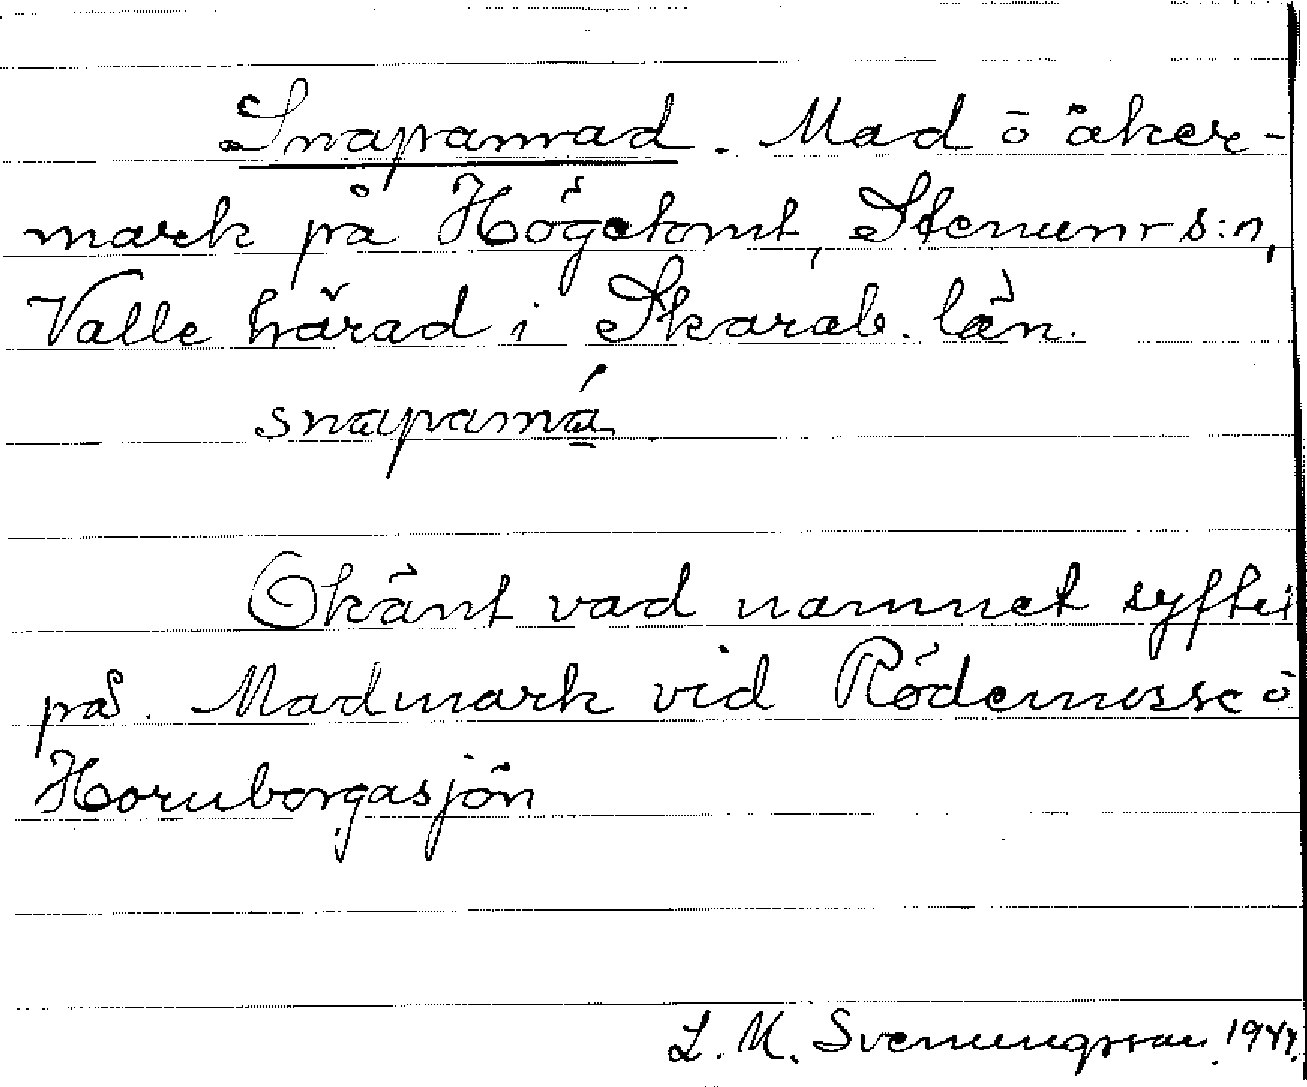 Snapamad. Mad ō åker-
mark på Högetomt, Stenums s:n,
Valle härad i Skarab. län.
snapamá
Okänt vad namnet syftei
på. Madmark vid Rödemosse ō
Hornborgasjön
L. M. Svenungsson 1944.